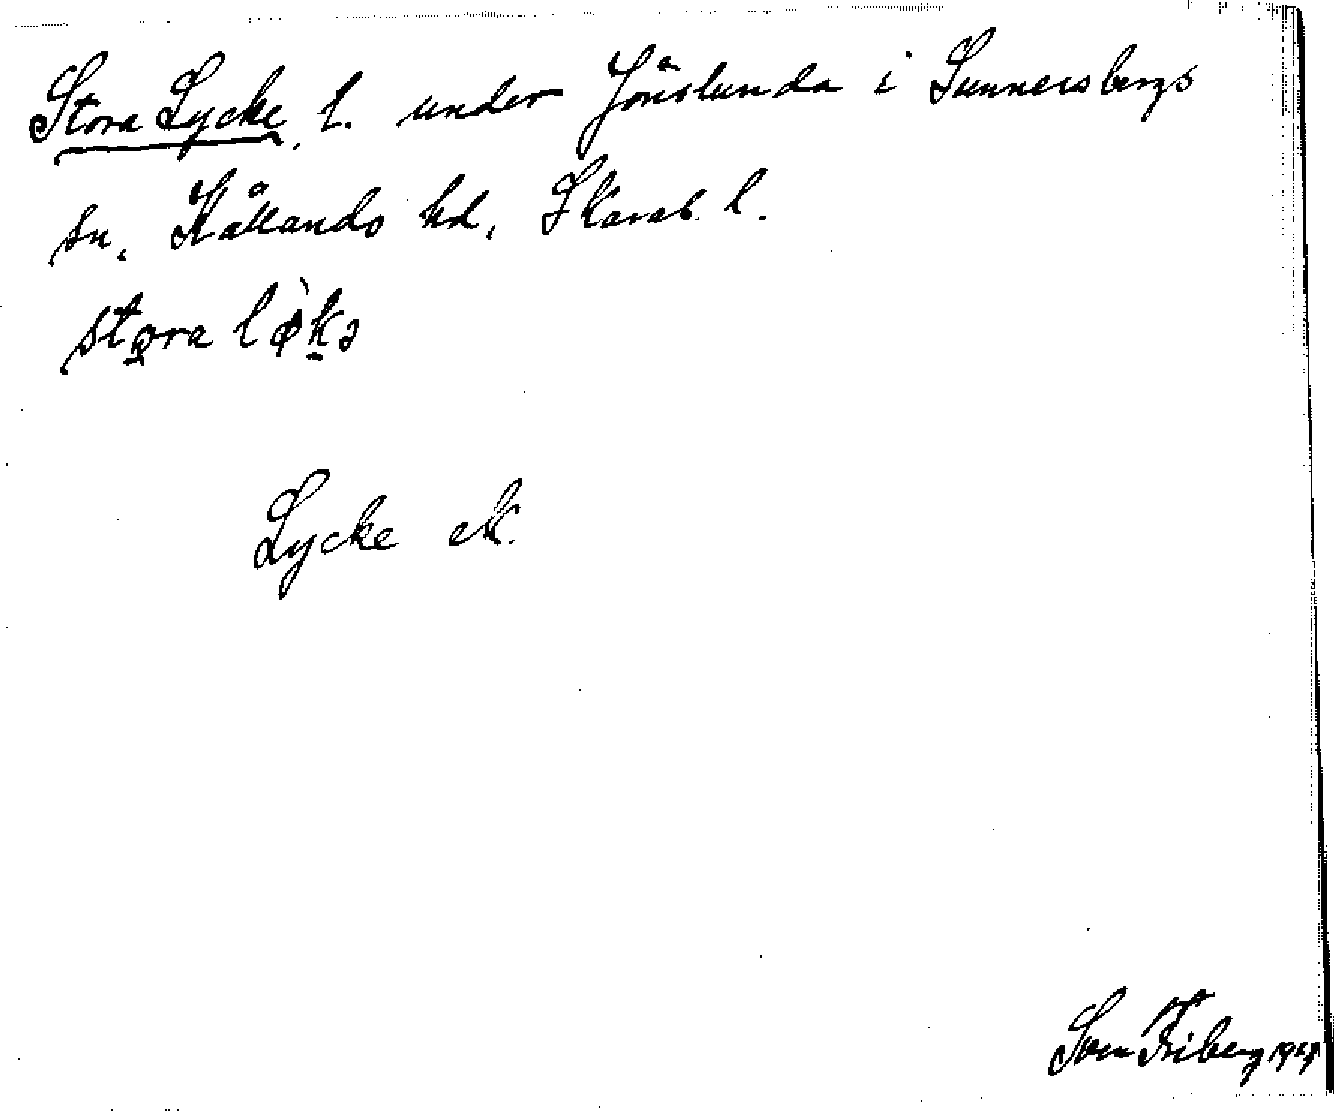 Stora Lycke, t. under Jönslunda i Sunnersbergs
sn, Kållands hd, Skarab. l.
stora lø̀kə
Lycke ek.
Sven Friberg